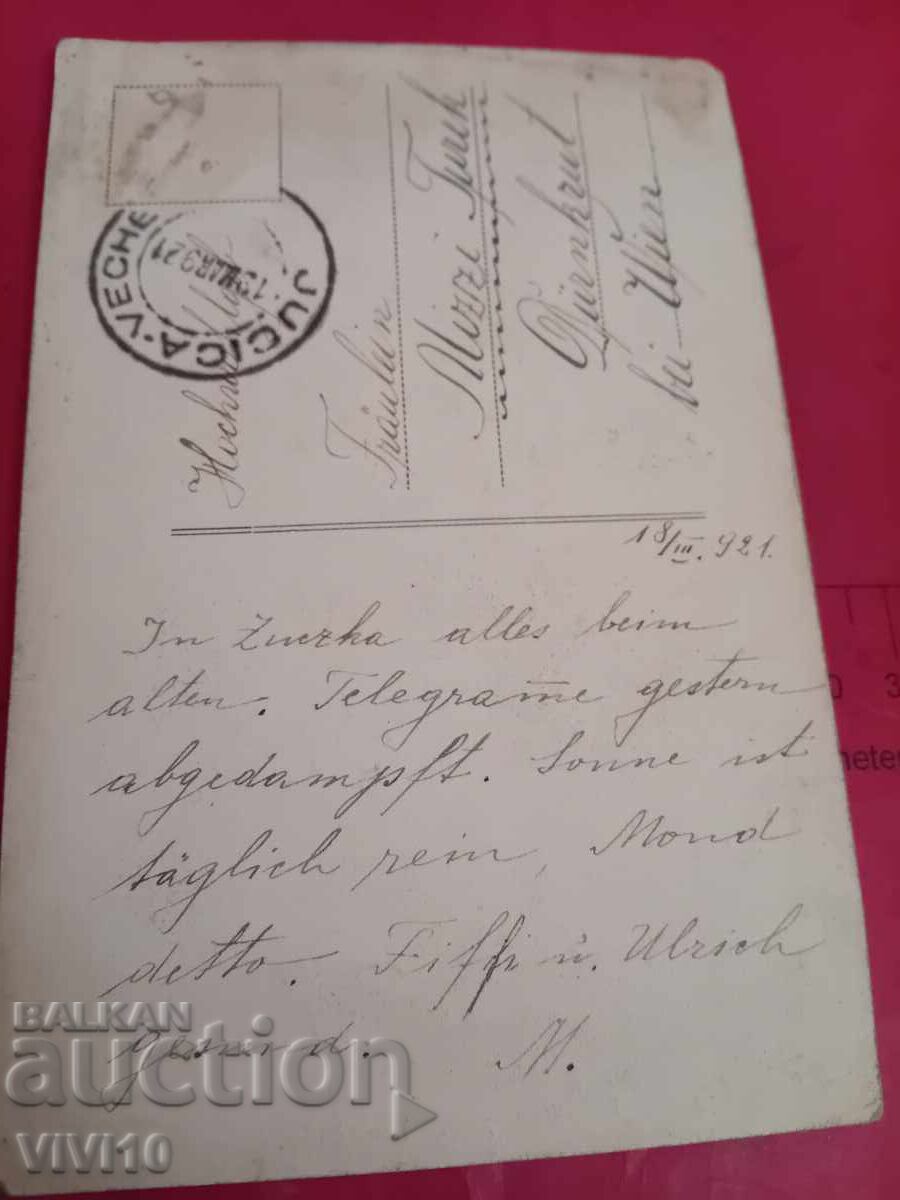 JUCICA·VECHE
19 MAR 921
Fräulein
Mizzi Turek
Dürnkrut
bei Wien
18/III. 921.
In Zuczka alles beim
alten. Telegram̅e gestern
abgedampft. Sonne ist
täglich rein, Mond
detto. Fiffi u. Ulrich
gesund. M.
BALKAN
auction
VIVI10
3